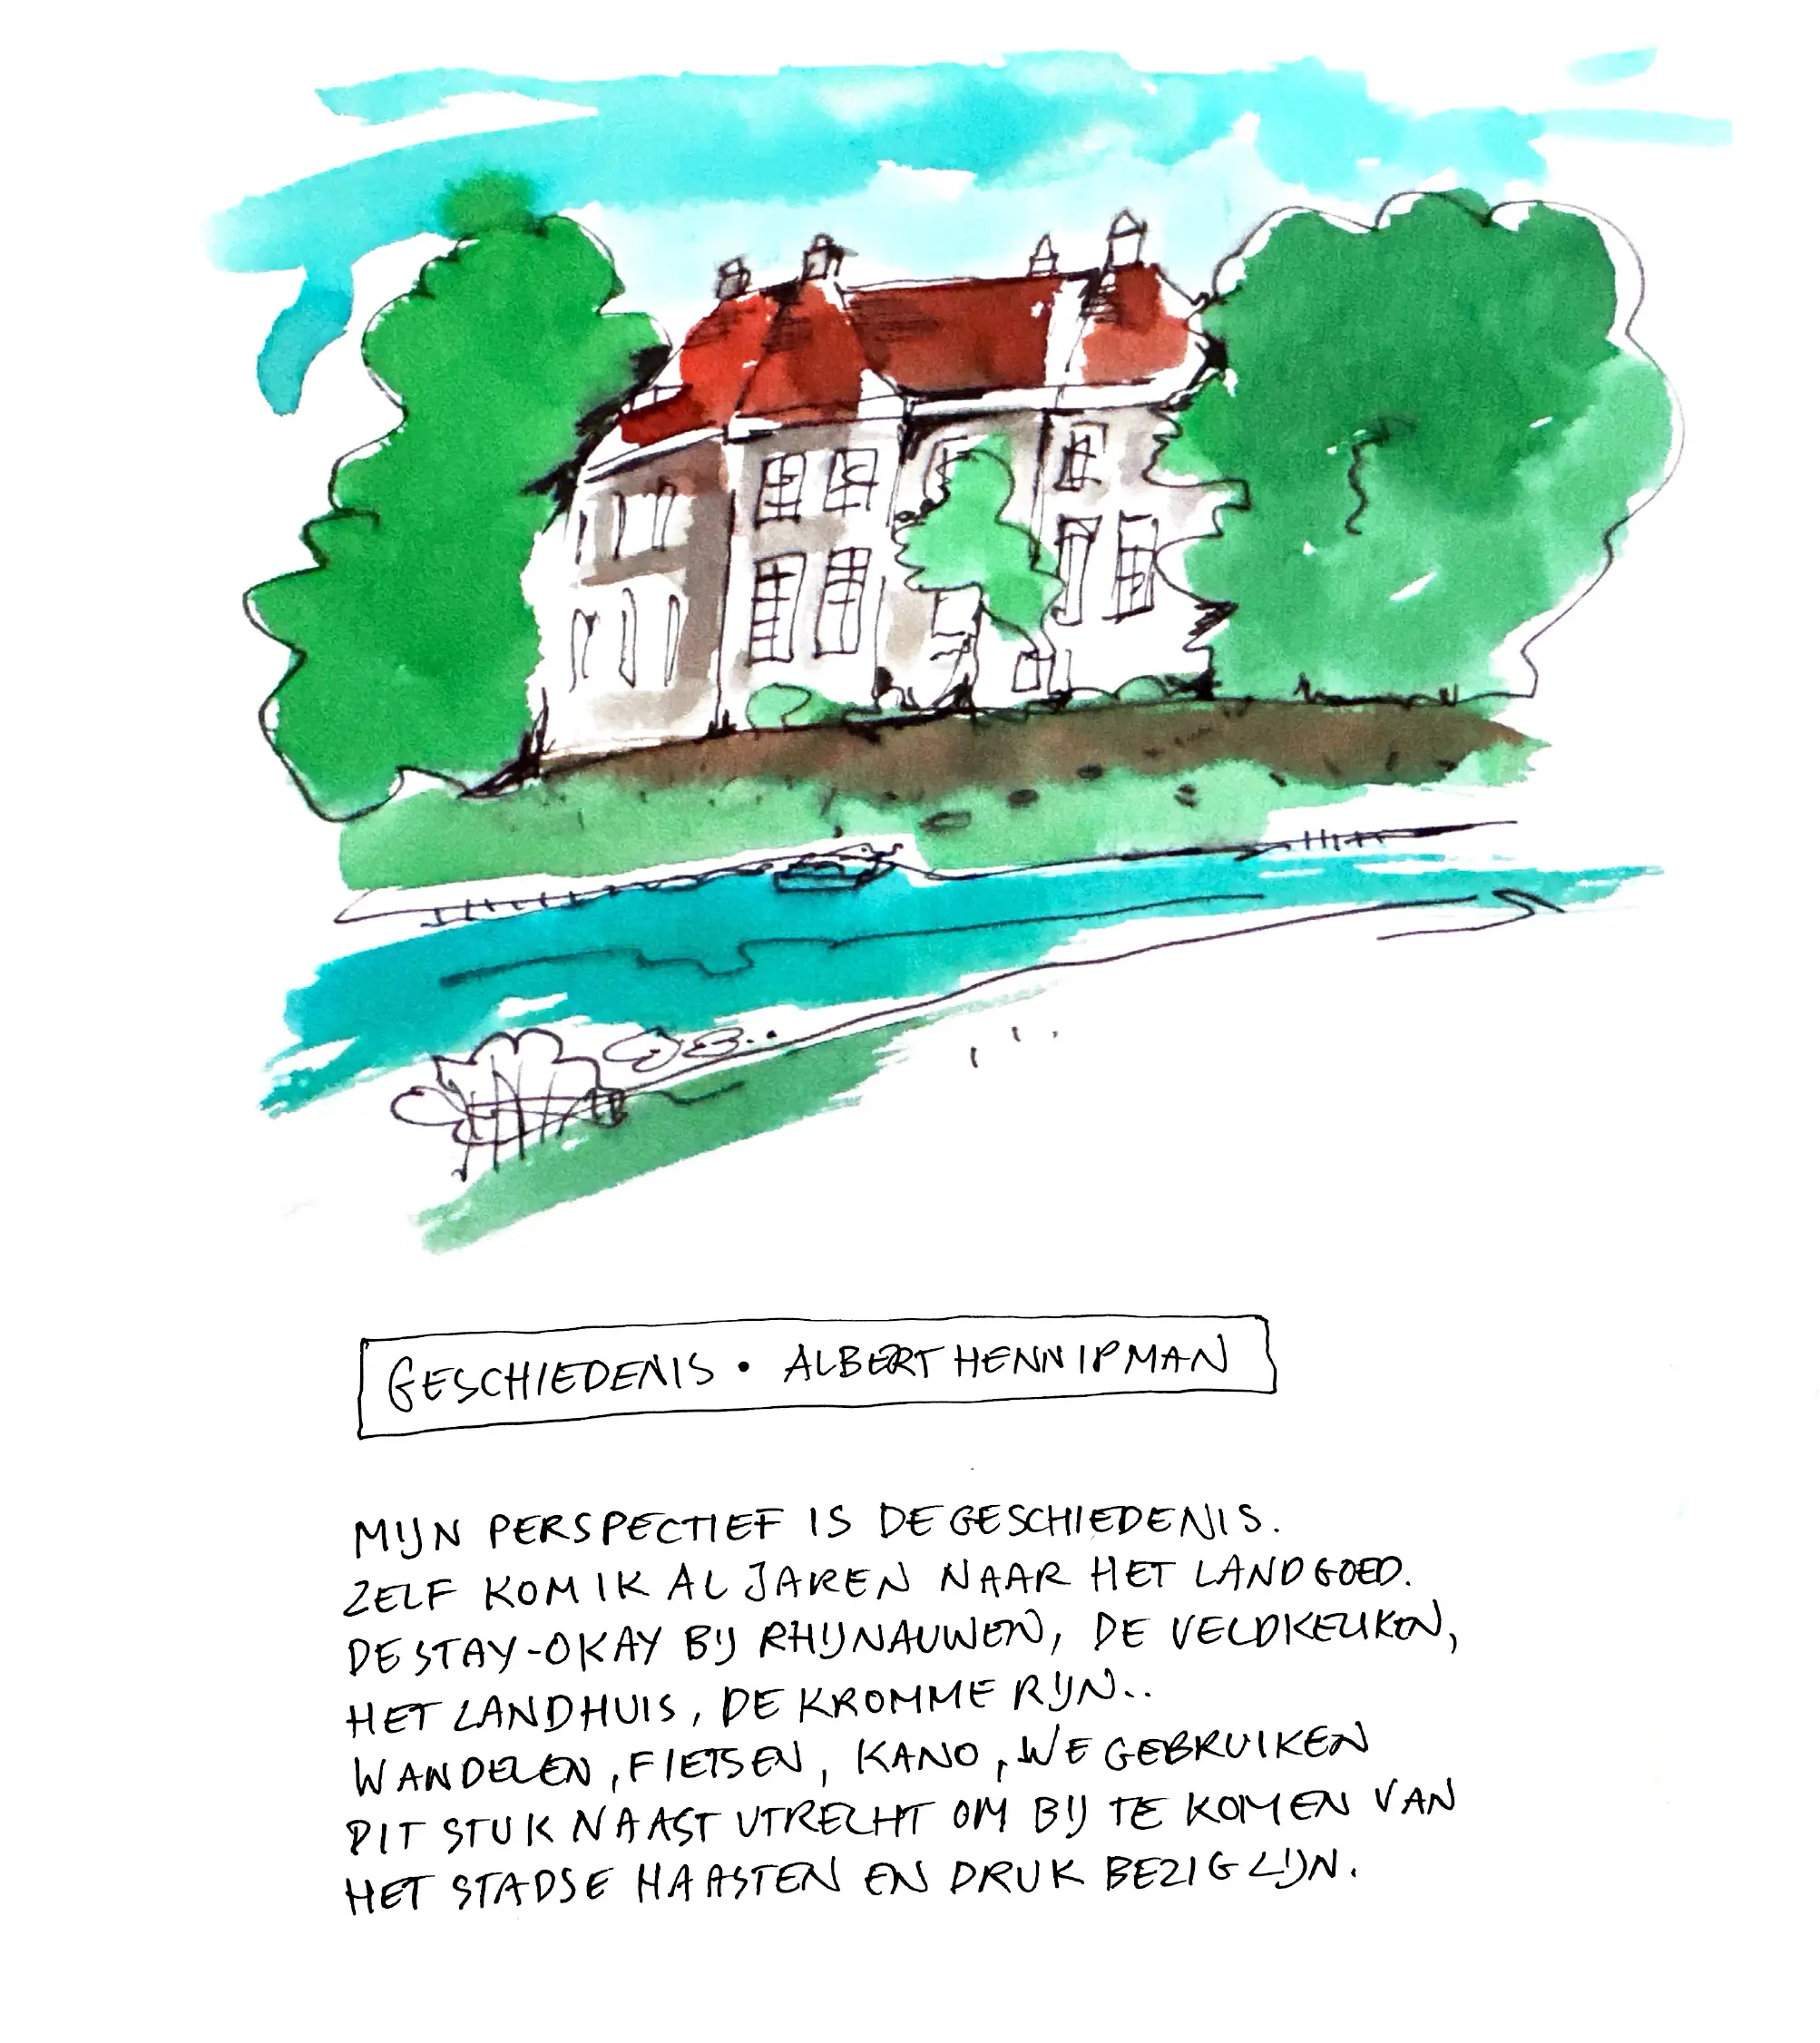 GESCHIEDENIS • ALBERT HENNIPMAN
MIJN PERSPECTIEF IS DE GESCHIEDENIS.
ZELF KOM IK AL JAREN NAAR HET LANDGOED.
DE STAY-OKAY BIJ RHIJNAUWEN, DE VELDKEUKEN,
HET LANDHUIS, DE KROMME RIJN..
WANDELEN, FIETSEN, KANO, WE GEBRUIKEN
DIT STUK NAAST UTRECHT OM BIJ TE KOMEN VAN
HET STADSE HAASTEN EN DRUK BEZIG ZIJN.